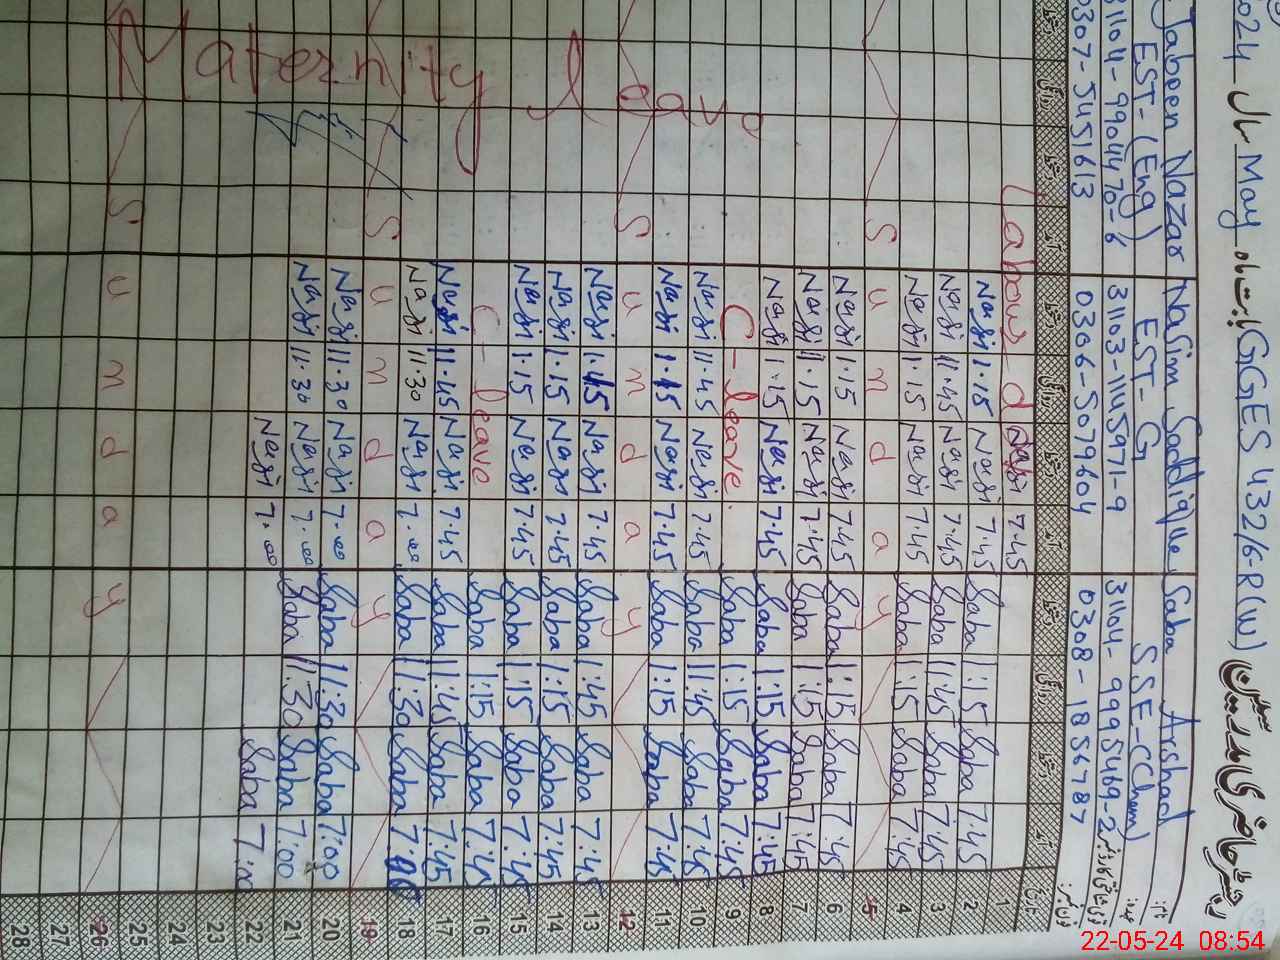 رجسٹر حاضری مدرسین GGES 432/6-R(W) بابت ماہ May سال 2024
Jabeen Nazar Nasim Saddique Saba Arshad نام:
EST-(Eng) EST-G SSE-C(Chem) عہدہ:
31104-9904470-6 31103-1145971-9 31104-9995469-2
0307-5451613 0306-5079604 0308-1856787 فون نمبر:
دستخط روانگی دستخط آمد دستخط روانگی دستخط آمد دستخط روانگی دستخط آمد تاریخ
Labour day Nasi 7.45 1
Nasi 1.15 Nasi 7.45 Saba 1:15 Saba 7.45 2
Nasi 11.45 Nasi 7.45 Saba 11:45 Saba 7:45 3
Nasi 1.15 Nasi 7.45 Saba 1:15 Saba 7:45 4
S u n d a y 5
Nasi 1.15 Nasi 7.45 Saba 1:15 Saba 7:45 6
Nasi 1.15 Nasi 7.45 Saba 1:15 Saba 7:45 7
Nasi 1.15 Nasi 7.45 Saba 1:15 Saba 7:45 8
Maternity leave C-leave Saba 1:15 Saba 7.45 9
Nasi 11.45 Nasi 7.45 Saba 11:45 Saba 7.45 10
Nasi 1.15 Nasi 7.45 Saba 1:15 Saba 7.45 11
S u n d a y 12
Nasi 1.45 Nasi 7.45 Saba 1:45 Saba 7.45 13
Nasi 1.15 Nasi 7.45 Saba 1:15 Saba 7.45 14
Nasi 1.15 Nasi 7.45 Saba 1:15 Saba 7.45 15
C-leave Saba 1:15 Saba 7.45 16
Nasi 11.45 Nasi 7.45 Saba 11:45 Saba 7.45 17
Nasi 11.30 Nasi 7.00 Saba 11:30 Saba 18
S u n d a y 19
Nasi 11.30 Nasi 7.00 Saba 11:30 Saba 7:00 20
Nasi 11.30 Nasi 7.00 Saba 11:30 Saba 7:00 21
Nasi 7.00 Saba 7:00 22
23
24
25
S u n d a y 26
27
28
22-05-24 08:54